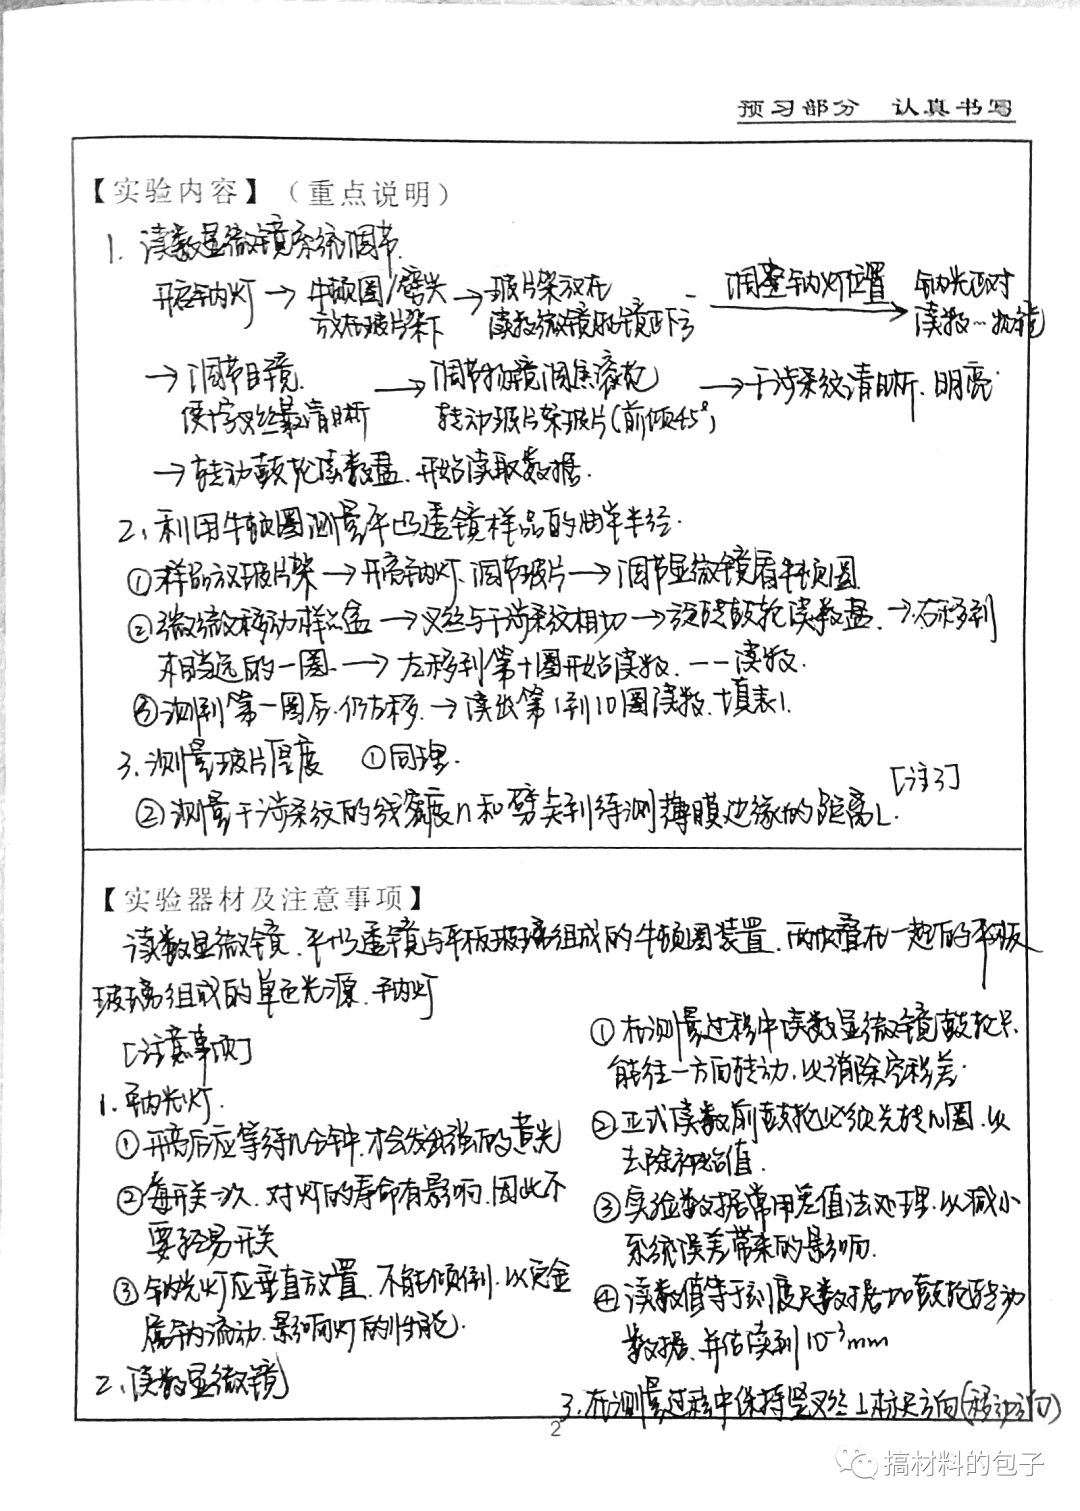 预习部分 认真书写
【实验内容】（重点说明）
1. 读数显微镜系统调节.
开启钠灯 → 牛顿圈/劈尖 → 玻片架放在 调整钠灯位置 钠光正对
放在玻片架下 读数微镜物镜正下方 → 读数…物镜
→ 调节目镜. → 调节物镜调焦滚轮 → 干涉条纹清晰.明亮
使十字叉丝最清晰 转动玻片架玻片(前倾45°)
→ 转动鼓轮读数盘.开始读取数据.
2、利用牛顿圈测量平凸透镜样品的曲率半径.
①样品放玻片架 → 开启钠灯.调节玻片 → 调节显微镜看牛顿圈
②微微移动样品盒 → 叉丝与干涉条纹相切 → 鼓轮读数盘. → 右移到
相当远的一圈. → 左移到第十圈开始读数. 一一读数.
③测到第一圈后.仍左移. → 读出第1到10圈读数.填表1.
3.测量玻片厚度 ①同理.
[注3]
②测量干涉条纹的线密度n和劈尖到待测薄膜边缘的距离L.
【实验器材及注意事项】
读数显微镜.平凸透镜与平板玻璃组成的牛顿圈装置.两块叠在一起的平板
玻璃组成的单色光源.钠灯
[注意事项]
1.钠光灯.
①开启后应等待几分钟.才会发出强的黄光
②每开关一次.对灯的寿命有影响.因此不
要轻易开关
③钠光灯应垂直放置.不能倾倒.以免金
属钠流动.影响灯的性能.
2、读数显微镜
①在测量过程中读数显微镜鼓轮只
能往一方向转动.以消除空程差.
②正式读数前鼓轮必须先转几圈.以
去除初始值.
③实验数据常用差值法处理.以减小
系统误差带来的影响.
④读数值等于刻度尺数据加鼓轮转动
数据.并估读到10⁻³mm
3.在测量过程中保持竖叉丝⊥标尺方向(移动方向)
2
搞材料的包子